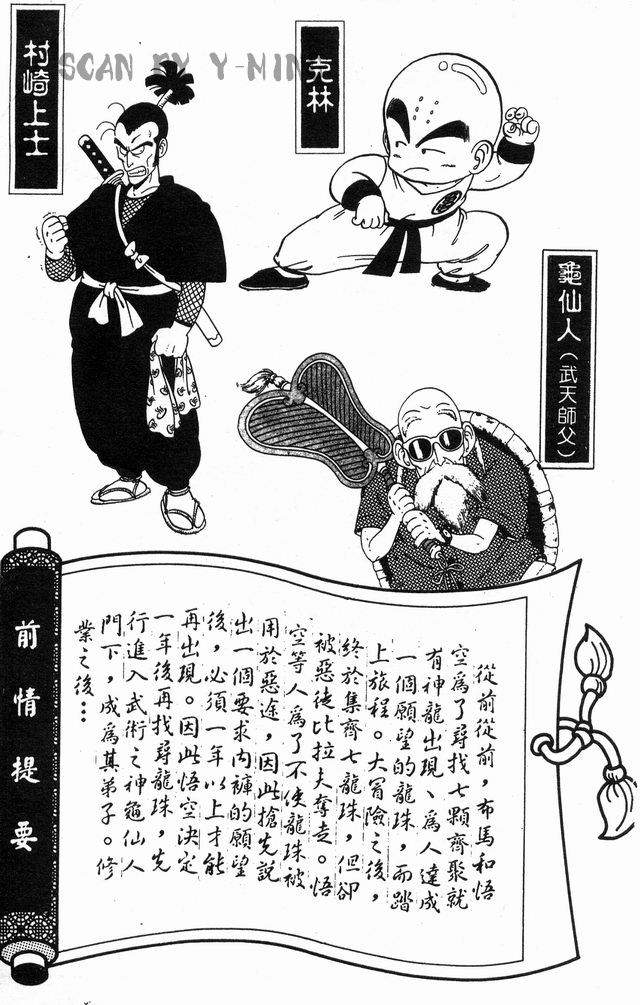 SCAN BY Y-MIN
克林
村崎上士
龜仙人(武天師父)
前情提要
從前從前,布馬和悟
空爲了尋找七顆齊聚就
有神龍出現、爲人達成
一個願望的龍珠,而踏
上旅程。大冒險之後,
終於集齊七龍珠,但卻
被惡徒比拉夫奪走。悟
空等人爲了不使龍珠被
用於惡途,因此搶先說
出一個要求內褲的願望
後,必須一年以上才能
再出現。因此悟空決定
一年後再找尋龍珠,先
行進入武術之神龜仙人
門下,成爲其弟子。修
業之後…